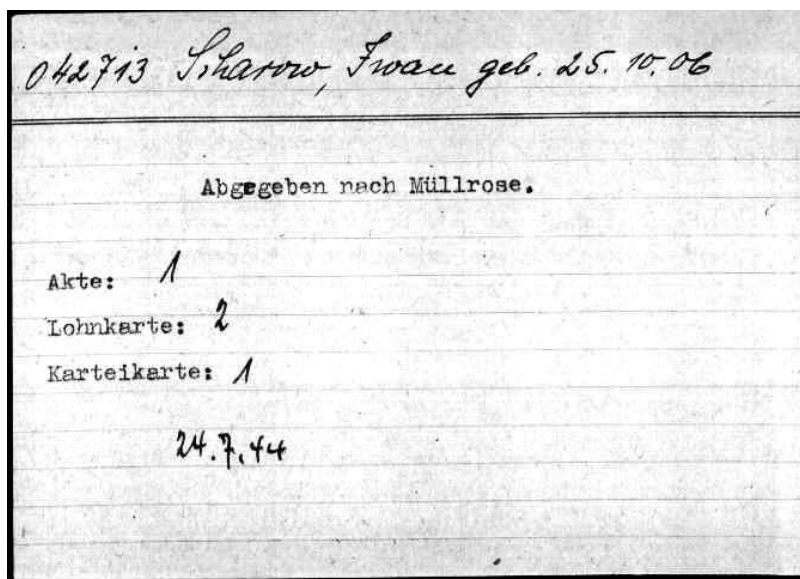 042713 Scharow, Iwan geb. 25.10.06
Abgegeben nach Müllrose.
Akte: 1
Lohnkarte: 2
Karteikarte: 1
24.7.44